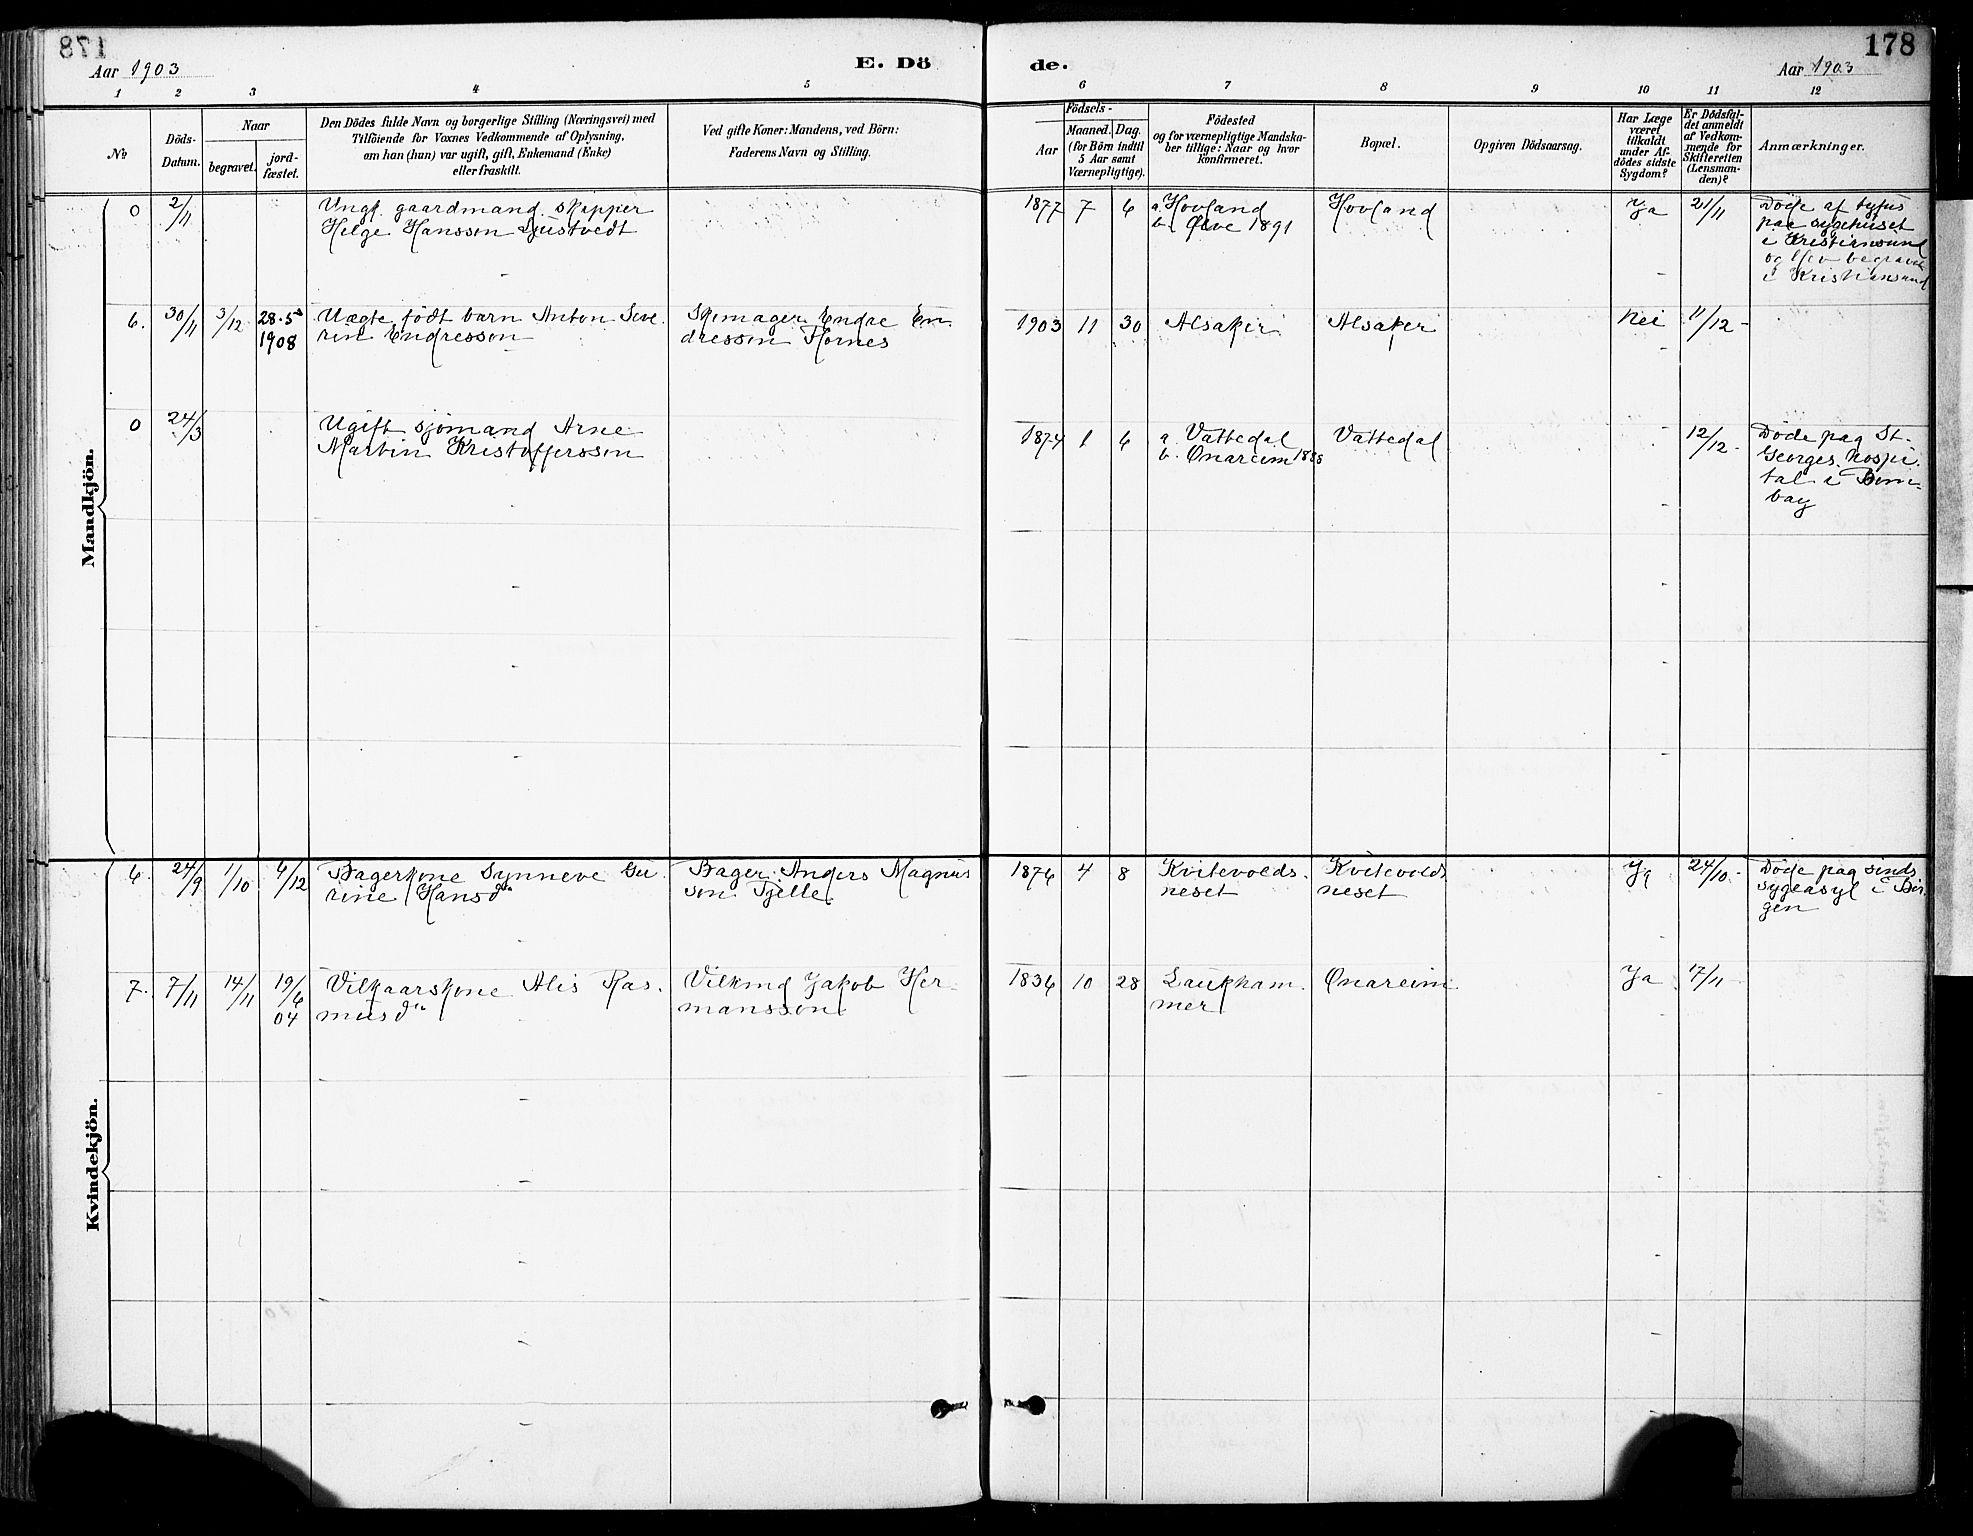 178
Aar 1903
E. Dö
de.
Aar 1903
1 2 3 4 5 6 7 8 9 10 11 12
No
Döds-
Datum.
Naar
begravet.
jord-
fæstet.
Den Dödes fulde Navn og borgerlige Stilling (Næringsvei) med
Tilföiende for Voxnes Vedkommende af Oplysning,
om han (hun) var ugift, gift, Enkemand (Enke)
eller fraskilt.
Ved gifte Koner: Mandens, ved Börn:
Faderens Navn og Stilling.
Födsels-
Aar
Maaned.
Dag.
(for Börn indtil
5 Aar samt
Værnepligtige).
Födested
og for værnepligtige Mandska-
ber tillige: Naar og hvor
konfirmeret.
Bopæl.
Opgiven Dödsaarsag.
Har Læge
været
tilkaldt
under Af-
dödes sidste
Sygdom?
Er Dödsfal-
det anmeldt
af Vedkom-
mende for
Skifteretten
(Lensman-
den)?
Anmærkninger.
Mandkjön.
0
2/11
Ungk. gaardmand. skipper
Helge Hansson Ljustvedt
1877 7 6
a. Hovland
b. Ølve 1891
Hovland
Ja
21/11
Døde af tyfus
paa sygehuset
i Kristiansund
og blev begravet
i Kristiansund
6.
30/11
3/12
28.5
1908
Uægte født barn Anton Seve-
rin Endresson
Skomager Endre En-
dresson Hornes
1903 11 30
Alsaker
Alsaker
Nei
11/12-
0
24/3
Ugift sjømand Arne
Martin Kristoffersson
1874 1 6
a. Vattedal
b. Onareim 1888
Vattedal
12/12-
Døde paa St.
Georges Hospi-
tal i Bom-
bay
Kvindekjön.
6.
24/9
1/10
6/12
Bagerkone Synneve Gu-
rine Hansdtr
Bager Anders Magnus-
son Tjelle
1876 4 8
Kvitevolds-
neset
Kvitevolds
neset
Ja
24/10-
Døde paa sinds
sygeasyl i Ber-
gen
7.
7/11
14/11
19/6
04
Vilkaarskone Alis Ras-
musdtr
Vilkmd Jakob Her-
mansson
1836 10 28
Laukham-
mer
Onareim
Ja
17/11